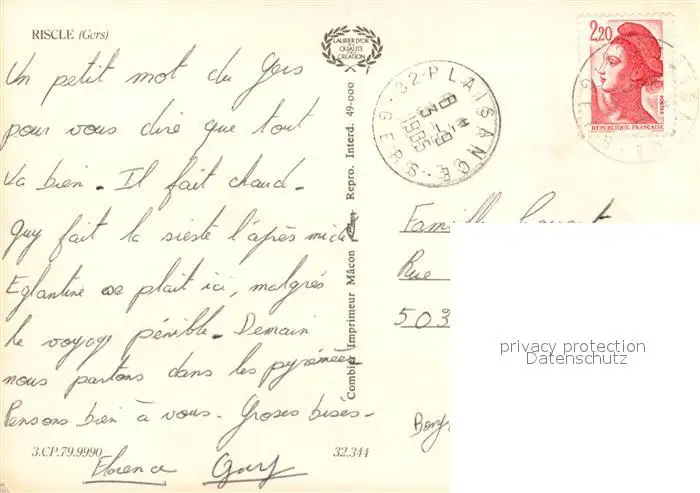 RISCLE (Gers)
LAURIER D'OR
de QUALITÉ
CRÉATION
Un petit mot du Gers
pour vous dire que tout
va bien. Il fait chaud.
Guy fait la sieste l'après midi
Eglantine se plait ici, malgrés
le voyage pénible. Demain
nous partons dans les pyrénées
Pensons bien à vous. Groses bises.
Florence Guy
3.CP.79.9990
32.344
Combier Imprimeur Mâcon Repro. Interd. 49-000
32-PLAISANCE
1985
GERS
2,20
POSTES
REPUBLIQUE FRANÇAISE
Famille
Rue
503
privacy protection
Datenschutz